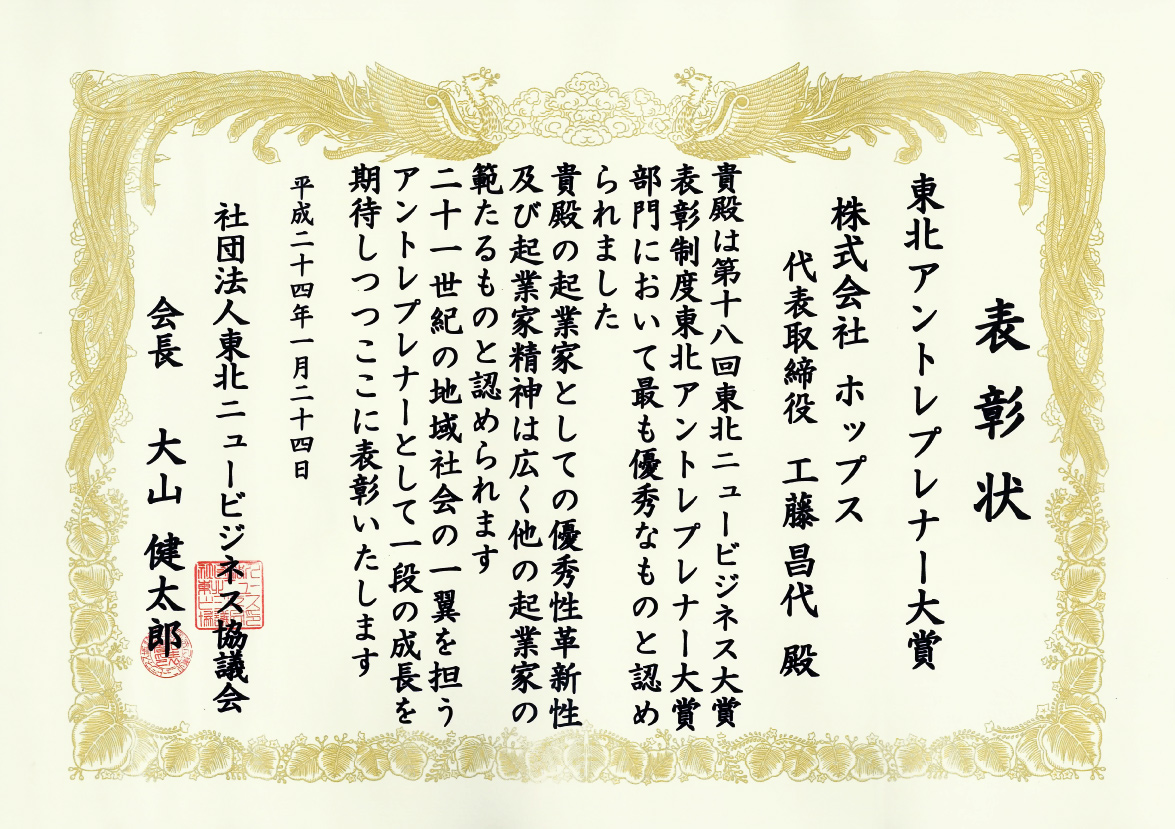 表彰状
東北アントレプレナー大賞
株式会社 ホップス
代表取締役 工藤昌代 殿
貴殿は第十八回東北ニュービジネス大賞
表彰制度東北アントレプレナー大賞
部門において最も優秀なものと認め
られました
貴殿の起業家としての優秀性革新性
及び起業家精神は広く他の起業家の
範たるものと認められます
二十一世紀の地域社会の一翼を担う
アントレプレナーとして一段の成長を
期待しつつここに表彰いたします
平成二十四年一月二十四日
社団法人東北ニュービジネス協議会
会長 大山 健太郎